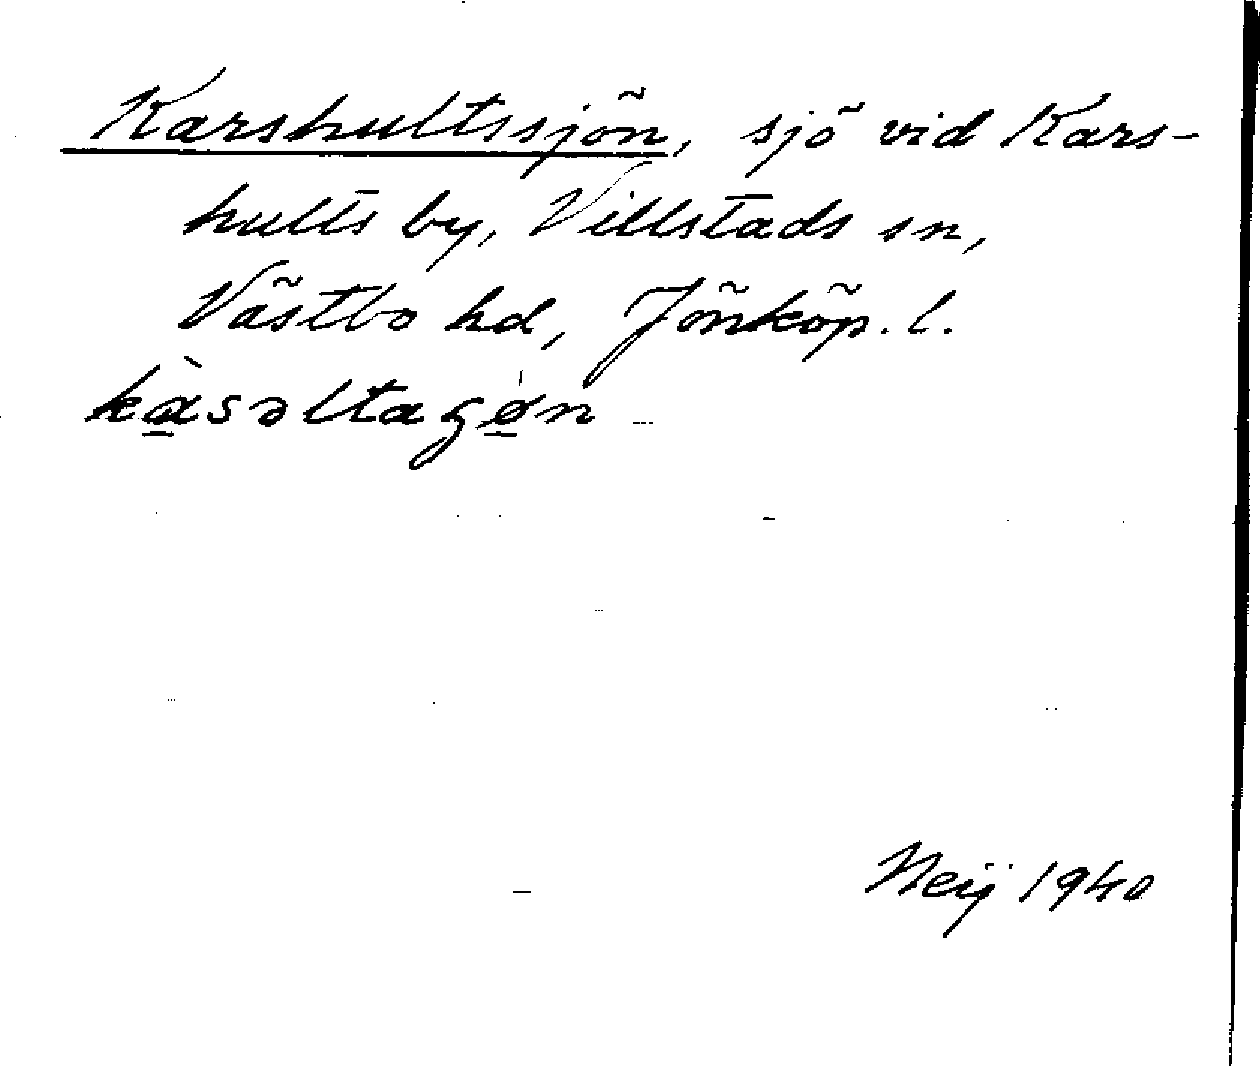 Karshultssjön, sjö vid Kars-
hults by, Villstads sn,
Västbo hd, Jönköp. l.
kàsəltagøn
Neij 1940